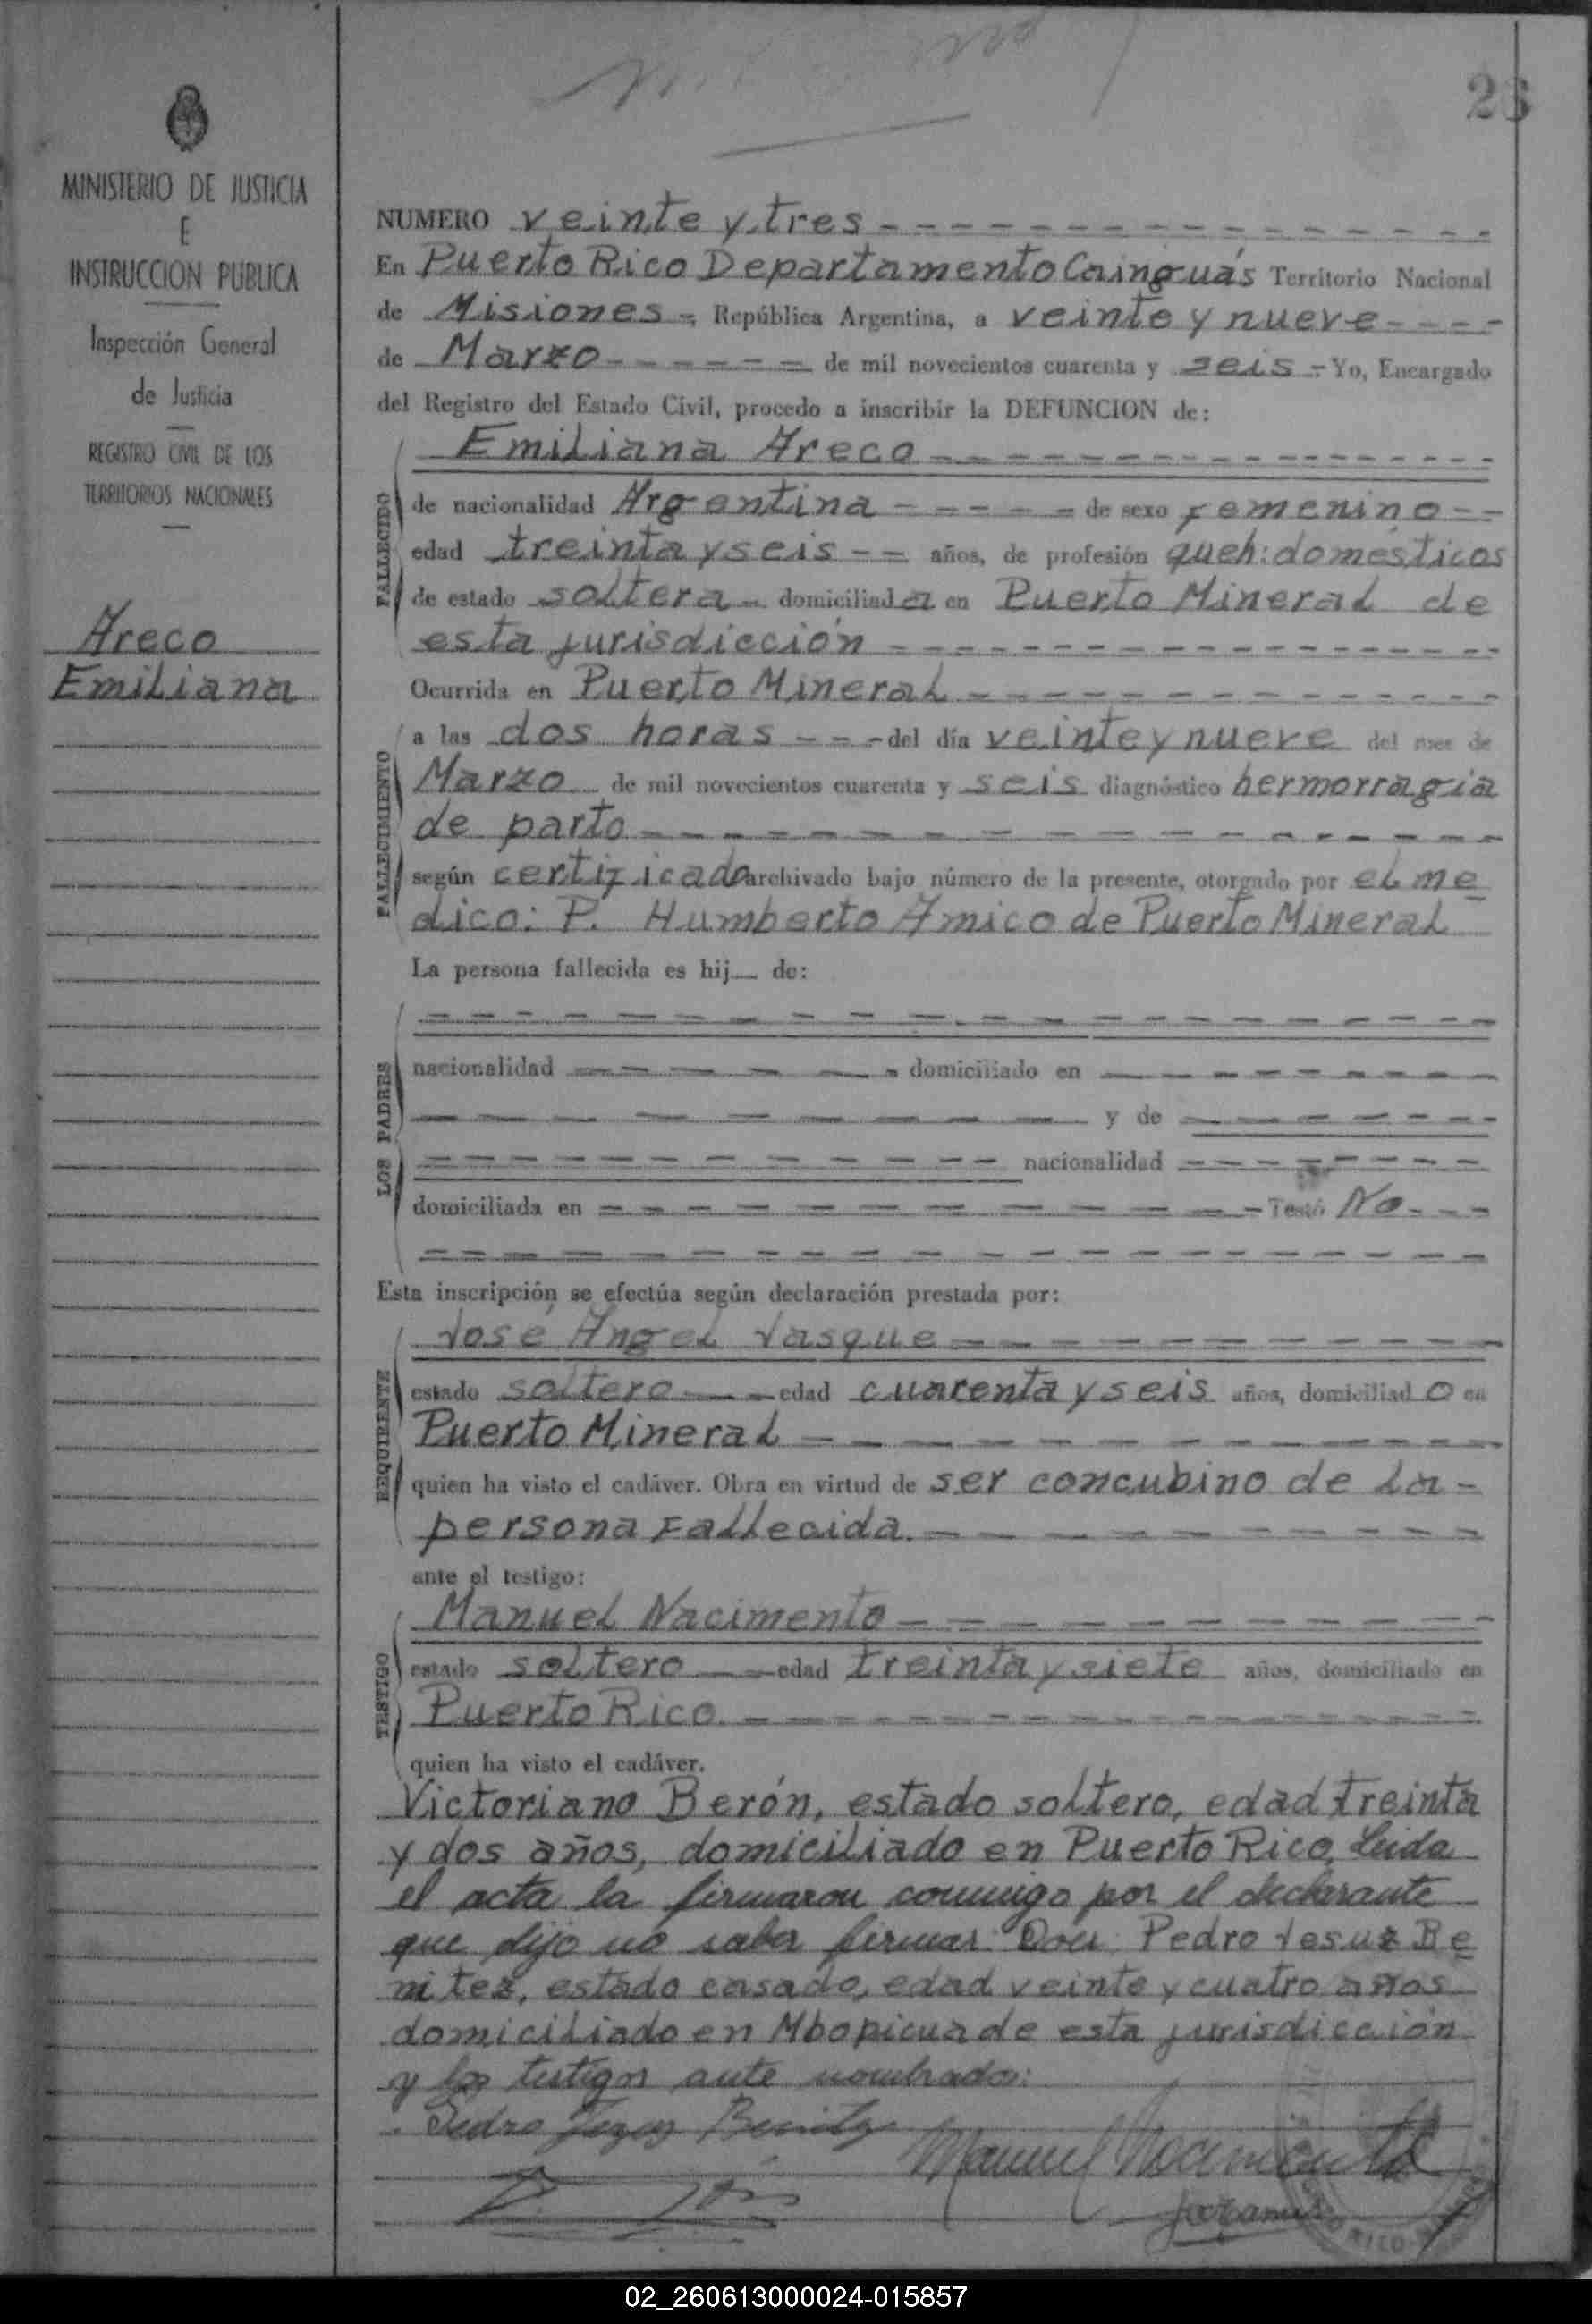 26
MINISTERIO DE JUSTICIA
E
INSTRUCCION PUBLICA
Inspección General
de Justicia
REGISTRO CIVIL DE LOS
TERRITORIOS NACIONALES
Areco
Emiliana
NUMERO veinte y tres
En Puerto Rico Departamento Cainguás Territorio Nacional
de Misiones, República Argentina, a veinte y nueve
de Marzo de mil novecientos cuarenta y seis - Yo, Encargado
del Registro del Estado Civil, procedo a inscribir la DEFUNCION de:
Emiliana Areco
FALLECIDO
de nacionalidad Argentina de sexo femenino
edad treinta y seis años, de profesión queh: domésticos
de estado soltera domiciliada en Puerto Mineral de
esta jurisdicción
Ocurrida en Puerto Mineral
FALLECIMIENTO
a las dos horas del día veinte y nueve del mes de
Marzo de mil novecientos cuarenta y seis diagnóstico hermorragia
de parto
según certificado archivado bajo número de la presente, otorgado por el me
dico: P. Humberto Amico de Puerto Mineral
La persona fallecida es hij de:
LOS PADRES
nacionalidad domiciliado en
y de
nacionalidad
domiciliada en Testó No
Esta inscripción se efectúa según declaración prestada por:
José Angel Vasque
REQUIRENTE
estado soltero edad cuarenta y seis años, domiciliado en
Puerto Mineral
quien ha visto el cadáver. Obra en virtud de ser concubino de la
persona fallecida.
ante el testigo:
Manuel Nacimento
TESTIGO
estado soltero edad treinta y siete años, domiciliado en
Puerto Rico
quien ha visto el cadáver.
Victoriano Berón, estado soltero, edad treinta
y dos años, domiciliado en Puerto Rico, Leida
el acta la firmaron conmigo por el declarante
que dijo no saber firmar: Don Pedro Jesus Be
nitez, estado casado, edad veinte y cuatro años
domiciliado en Mbopicua de esta jurisdicción
y los testigos ante nombrado:
Pedro Jezus Benitez
Manuel Nacimento
RICO
02_260613000024-015857